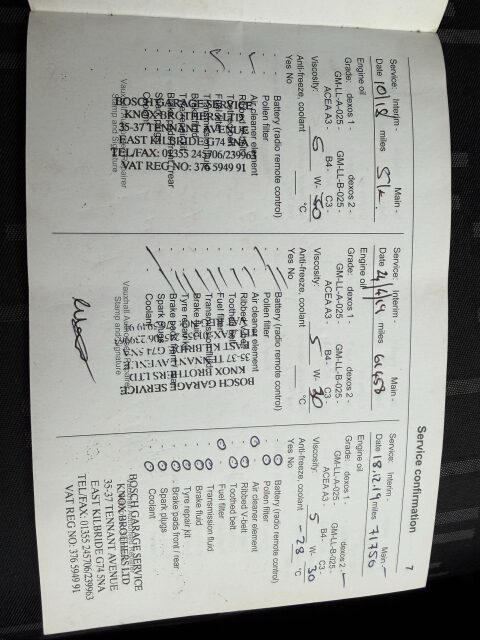 Service confirmation
7
Service: Interim - Main -
Date 10/18 miles 51k.
Engine oil
Grade: dexos 1 - dexos 2 -
GM-LL-A-025 - GM-LL-B-025 -
ACEA A3 - B4 - C3 -
Viscosity: 5 W- 30
Anti-freeze, coolant °C
Yes No
Battery (radio remote control)
Pollen filter
Air cleaner element
BOSCH GARAGE SERVICE
KNOX BROTHERS LTD
35-37 TENNANT AVENUE
EAST KILBRIDE G74 5NA
TEL/FAX: 01355 245706/239963
VAT REG NO: 376 5949 91
Service: Interim - Main -
Date 4/4/19 miles 61458
Engine oil
Grade: dexos 1 - dexos 2 -
GM-LL-A-025 - GM-LL-B-025 -
ACEA A3 - B4 - C3 -
Viscosity: 5 W- 30
Anti-freeze, coolant °C
Yes No
Battery (radio remote control)
Pollen filter
Air cleaner element
Ribbed V-belt
Toothed belt
Fuel filter
Transmission fluid
Brake fluid
Tyre repair kit
Brake pads front / rear
Spark plugs
Coolant
Vauxhall Authorised Repairer
Stamp and Signature
BOSCH GARAGE SERVICE
KNOX BROTHERS LTD
35-37 TENNANT AVENUE
EAST KILBRIDE G74 5NA
Service: Interim - Main -
Date 18.12.19 miles 71756
Engine oil
Grade: dexos 1 - dexos 2 -
GM-LL-A-025 - GM-LL-B-025 -
ACEA A3 - B4 - C3 -
Viscosity: 5 W- 30
Anti-freeze, coolant -28 °C
Yes No
Battery (radio remote control)
Pollen filter
Air cleaner element
Ribbed V-belt
Toothed belt
Fuel filter
Transmission fluid
Brake fluid
Tyre repair kit
Brake pads front / rear
Spark plugs
Coolant
BOSCH GARAGE SERVICE
KNOX BROTHERS LTD
35-37 TENNANT AVENUE
EAST KILBRIDE G74 5NA
TEL/FAX: 01355 245706/239963
VAT REG NO: 376 5949 91